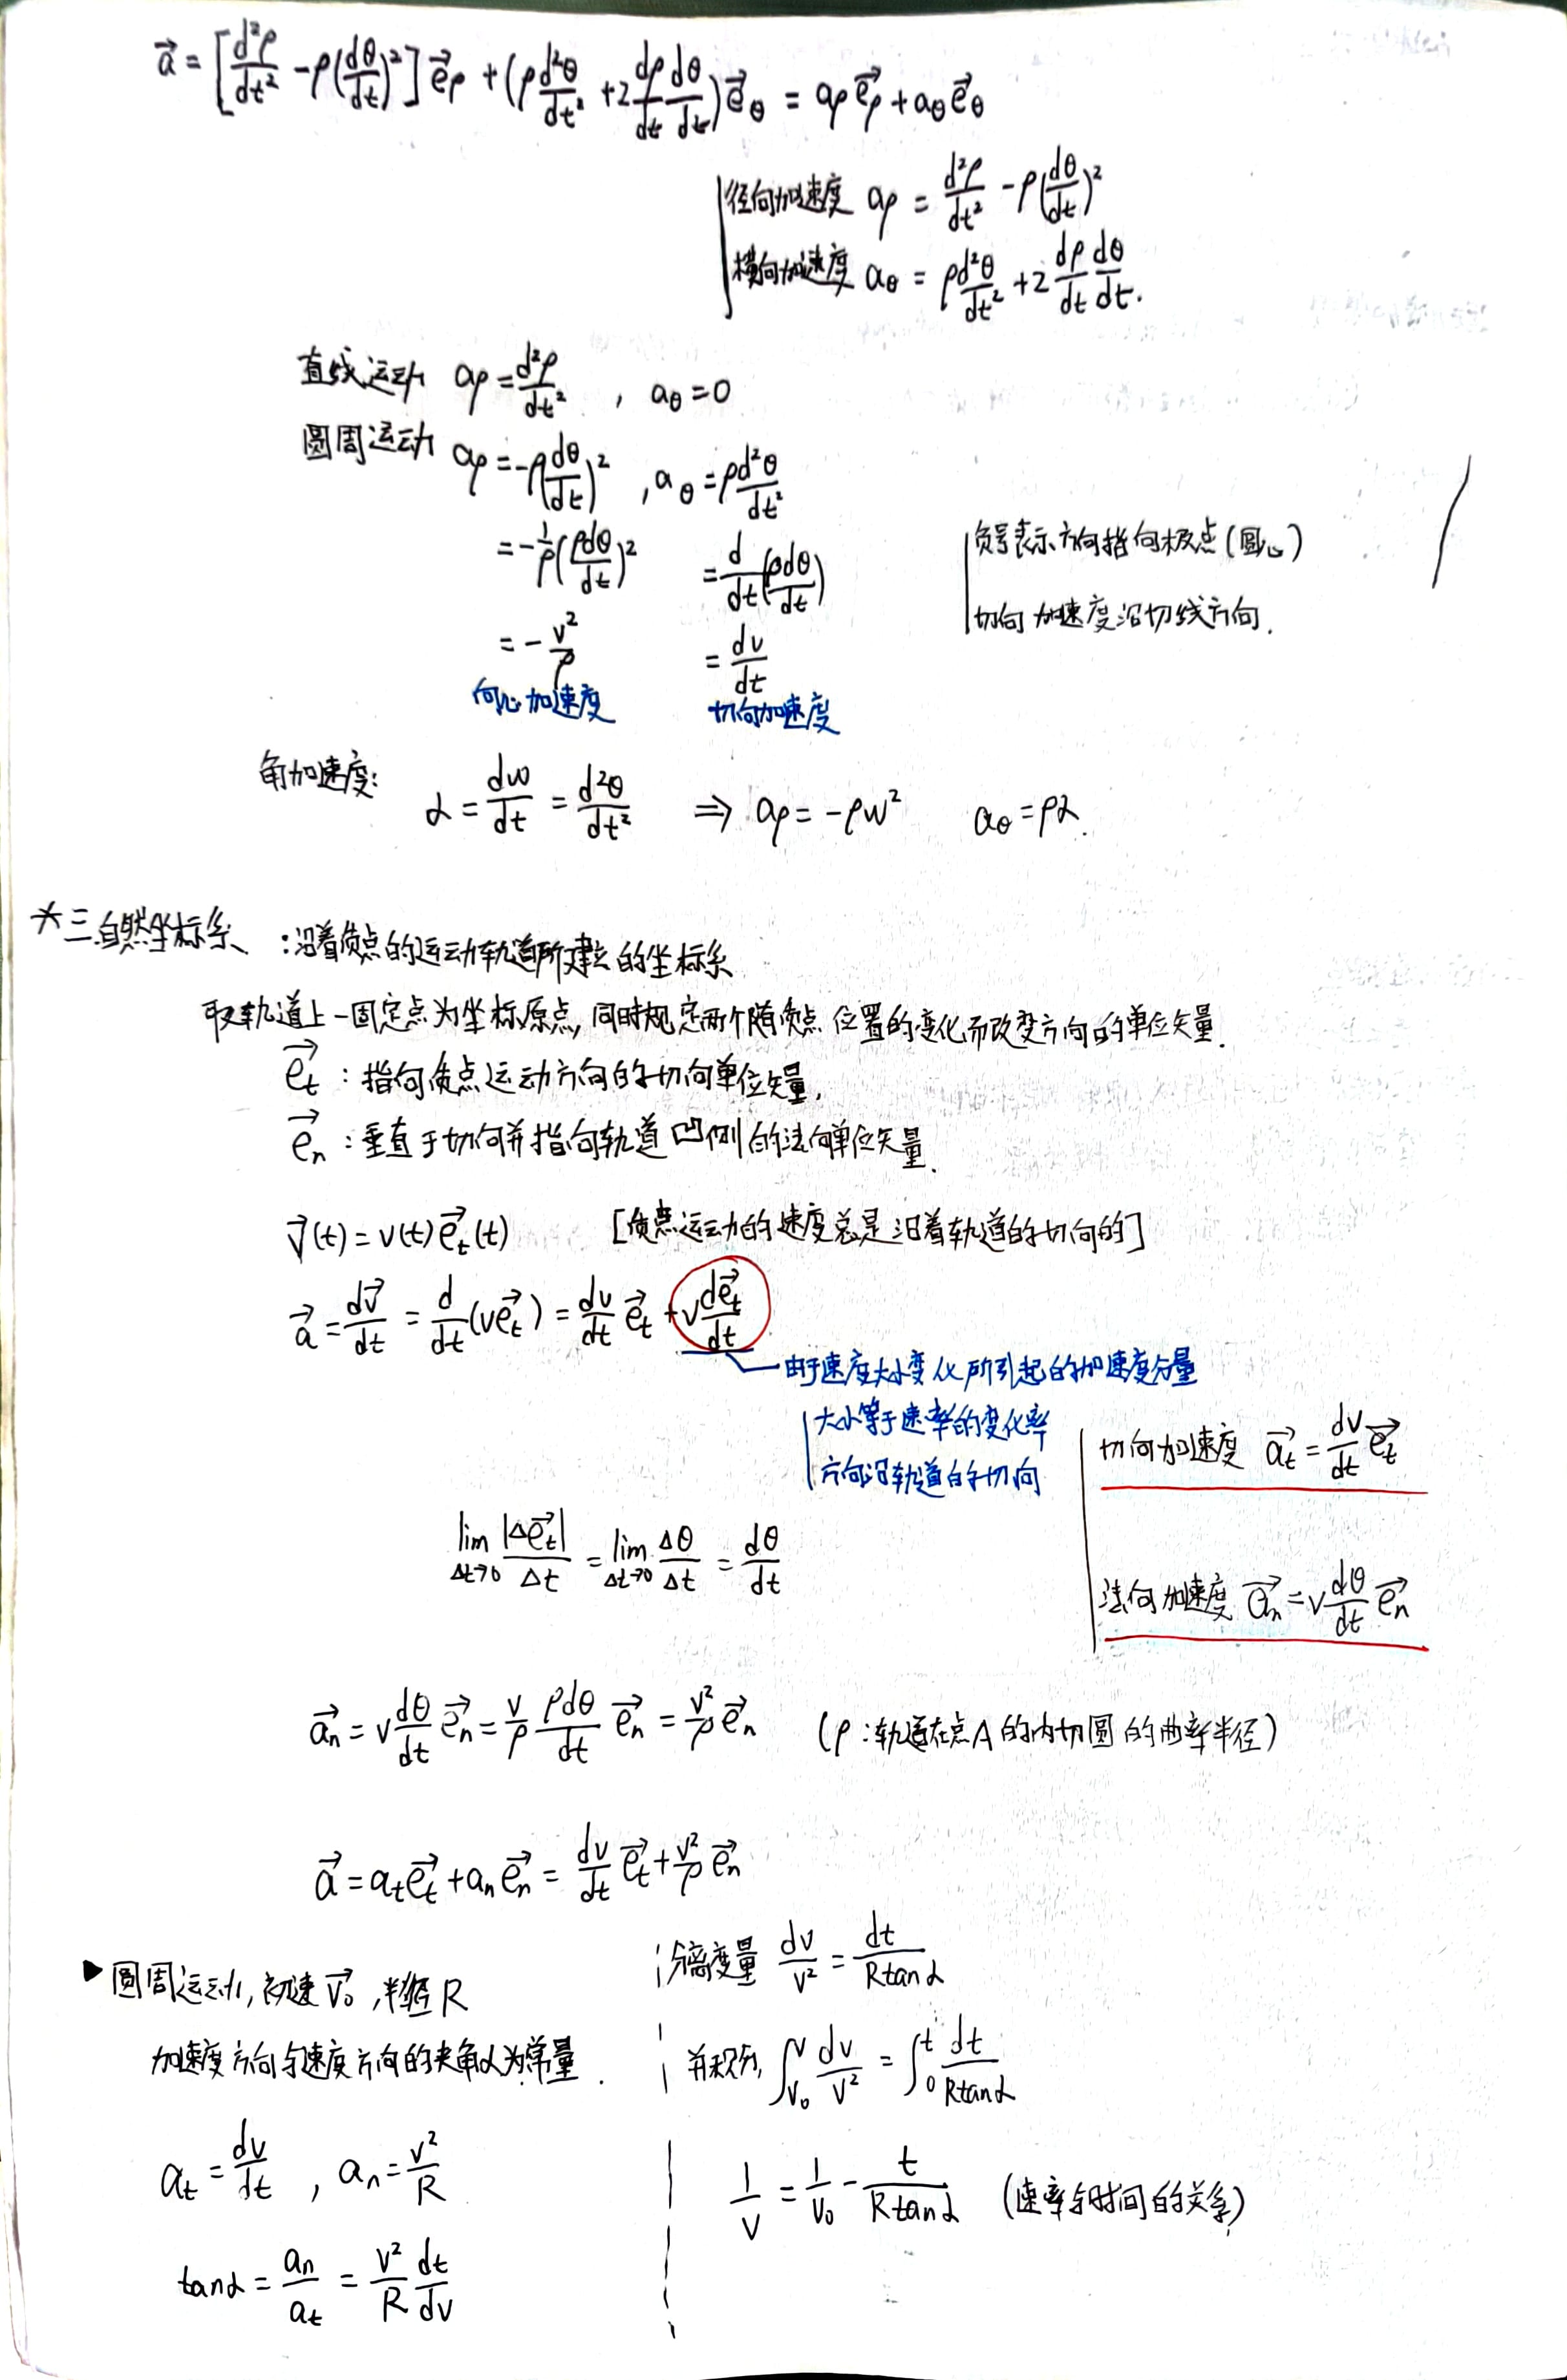 $\vec{a} = \left[\frac{d^2\rho}{dt^2} - \rho\left(\frac{d\theta}{dt}\right)^2\right]\vec{e}_\rho + \left(\rho\frac{d^2\theta}{dt^2} + 2\frac{d\rho}{dt}\frac{d\theta}{dt}\right)\vec{e}_\theta = a_\rho\vec{e}_\rho + a_\theta\vec{e}_\theta$
径向加速度 $a_\rho = \frac{d^2\rho}{dt^2} - \rho\left(\frac{d\theta}{dt}\right)^2$
横向加速度 $a_\theta = \rho\frac{d^2\theta}{dt^2} + 2\frac{d\rho}{dt}\frac{d\theta}{dt}$.
直线运动 $a_\rho = \frac{d^2\rho}{dt^2}$ , $a_\theta = 0$
圆周运动 $a_\rho = -\rho\left(\frac{d\theta}{dt}\right)^2$ , $a_\theta = \rho\frac{d^2\theta}{dt^2}$
$= -\frac{1}{\rho}\left(\frac{\rho d\theta}{dt}\right)^2$ $= \frac{d}{dt}\left(\frac{\rho d\theta}{dt}\right)$
负号表示方向指向极点(圆心)
$= -\frac{v^2}{\rho}$ $= \frac{dv}{dt}$
切向加速度沿切线方向.
向心加速度 切向加速度
角加速度: $\alpha = \frac{d\omega}{dt} = \frac{d^2\theta}{dt^2}$ $\Rightarrow a_\rho = -\rho\omega^2$ $a_\theta = \rho\alpha$.
*三.自然坐标系 :沿着质点的运动轨道所建立的坐标系
取轨道上一固定点为坐标原点,同时规定两个随质点位置的变化而改变方向的单位矢量.
$\vec{e_t}$ : 指向质点运动方向的切向单位矢量,
$\vec{e_n}$ : 垂直于切向并指向轨道凹侧的法向单位矢量.
$\vec{v}(t) = v(t)\vec{e_t}(t)$ [质点运动的速度总是沿着轨道的切向的]
$\vec{a} = \frac{d\vec{v}}{dt} = \frac{d}{dt}(v\vec{e_t}) = \frac{dv}{dt}\vec{e_t} + v\frac{d\vec{e_t}}{dt}$
由于速度大小变化所引起的加速度分量
大小等于速率的变化率
方向沿轨道的切向
切向加速度 $\vec{a_t} = \frac{dv}{dt}\vec{e_t}$
$\lim_{\Delta t \to 0}\frac{|\Delta\vec{e_t}|}{\Delta t} = \lim_{\Delta t \to 0}\frac{\Delta\theta}{\Delta t} = \frac{d\theta}{dt}$
法向加速度 $\vec{a_n} = v\frac{d\theta}{dt}\vec{e_n}$
$\vec{a_n} = v\frac{d\theta}{dt}\vec{e_n} = \frac{v}{\rho}\frac{\rho d\theta}{dt}\vec{e_n} = \frac{v^2}{\rho}\vec{e_n}$ (ρ:轨道在点A的内切圆的曲率半径)
$\vec{a} = a_t\vec{e_t} + a_n\vec{e_n} = \frac{dv}{dt}\vec{e_t} + \frac{v^2}{\rho}\vec{e_n}$
▶圆周运动,初速$\vec{v_0}$,半径R
加速度方向与速度方向的夹角α为常量.
$a_t = \frac{dv}{dt}$ , $a_n = \frac{v^2}{R}$
$\tan\alpha = \frac{a_n}{a_t} = \frac{v^2}{R}\frac{dt}{dv}$
分离变量 $\frac{dv}{v^2} = \frac{dt}{R\tan\alpha}$
并积分, $\int_{v_0}^{v}\frac{dv}{v^2} = \int_0^t\frac{dt}{R\tan\alpha}$
$\frac{1}{v} = \frac{1}{v_0} - \frac{t}{R\tan\alpha}$ (速率与时间的关系)